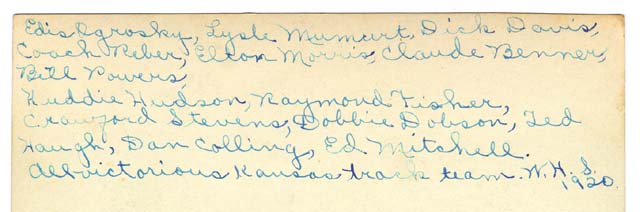 Edis Ogrosky, Lysle Mumurt, Dick Davis,
Coach Reber, Elton Morris, Claude Benner,
Bill Powers,
Huddie Hudson, Raymond Fisher,
Crawford Stevens, Dobbie Dobson, Ted
Haugh, Dan Colling, Ed Mitchell.
All-victorious Kansas track team. W.H.S.
1920.